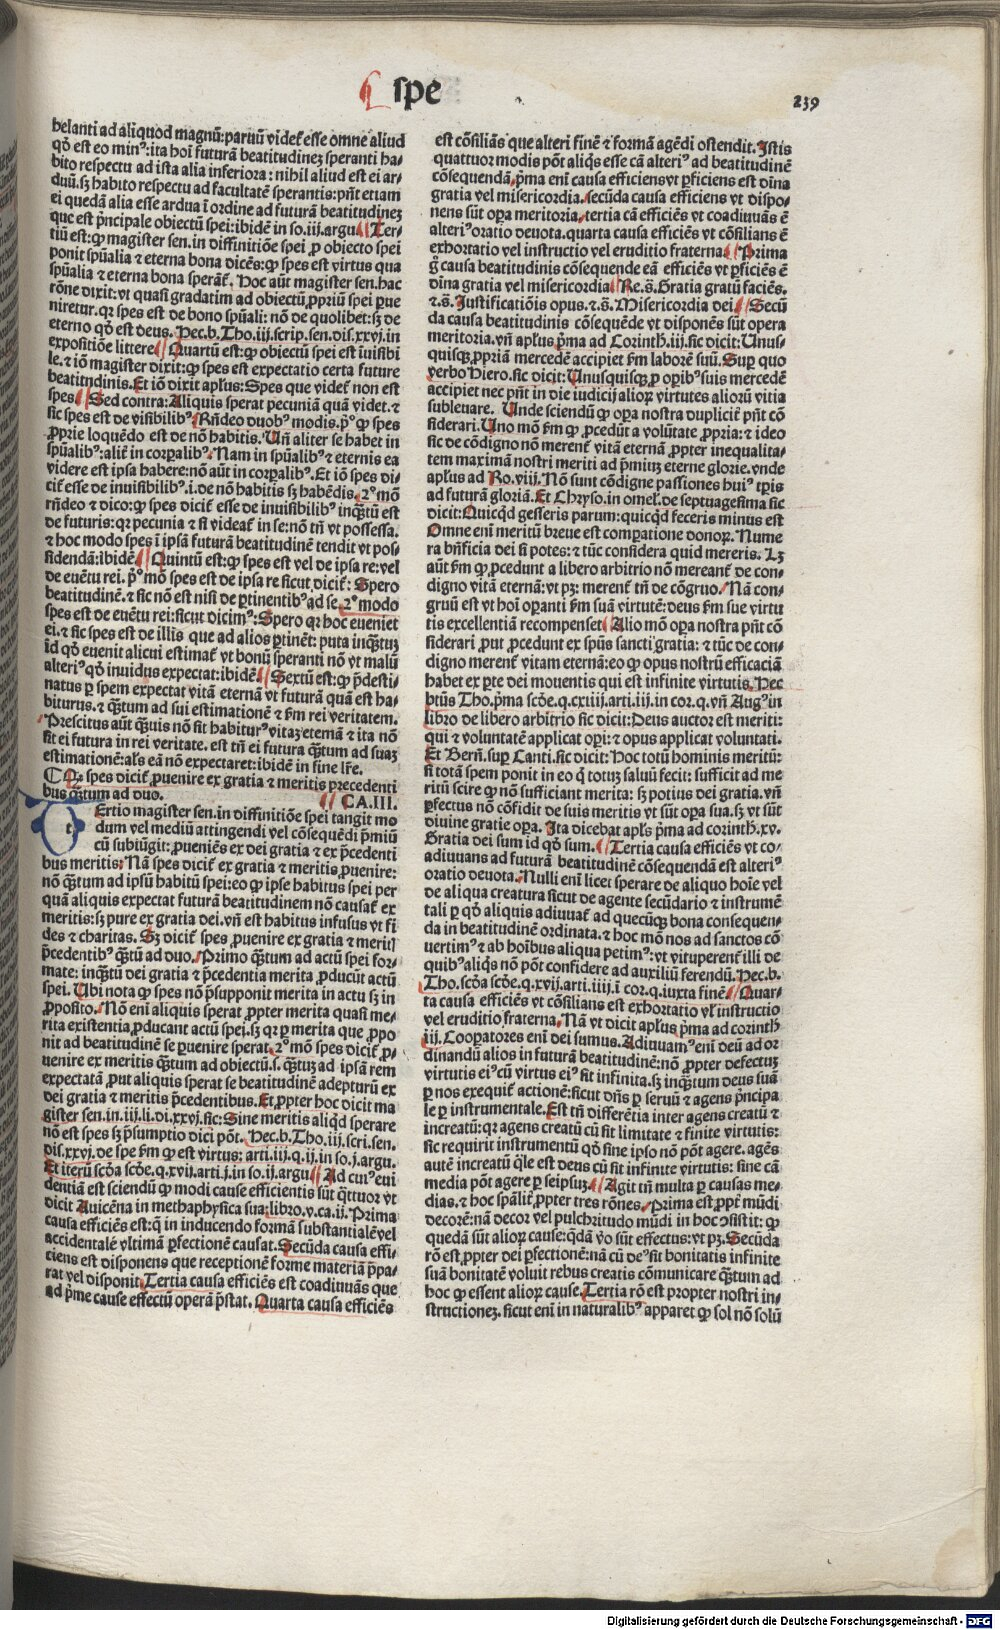 ¶ spe
239
helanti ad aliquod magnū: paruū videt̄ esse omne aliud
qd̓ est eo minꝰ: ita hoī futurā beatitudineꝫ speranti ha-
bito respectu ad ista alia inferiora: nihil aliud est ei ar-
duū. sꝫ habito respectu ad facultatē sperantis: pn̄t etiam
ei quedā alia esse ardua ī ordine ad futurā beatitudineꝫ
que est pn̓cipale obiectū spei: ibidē in so. iij. argu. ¶ Ter-
tiū est: ꝙ magister sen. in diffinitiōe spei ꝓ obiecto spei
ponit spūalia ⁊ eterna bona dicēs: ꝙ spes est virtus qua
spūalia ⁊ eterna bona sperant̄. Hoc aūt magister sen. hac
rōne dixit: vt quasi gradatim ad obiectū ꝓpriū spei ꝑue
niretur. qꝛ spes est de bono spūali: nō de quolibet: sꝫ de
eterno qd̓ est deus. Hec. b. Tho. iij. scrip. sen. dis. xxvj. in
expositiōe littere. ¶ Quartū est: ꝙ obiectū spei est īuisibi
le. ⁊ iō magister dixit: ꝙ spes est expectatio certa future
beatitudinis. Et iō dixit apl̄us: Spes que videt̄ non est
spes. ¶ Sed contra: Aliquis sperat pecuniā quā videt. ⁊
sic spes est de visibilibꝰ. Rn̄deo duobꝰ modis. pº ꝙ spes
ꝓprie loquēdo est de nō habitis. Un̄ aliter se habet in
spūalibꝰ: alit̄ in corꝑalibꝰ. Nam in spūalibꝰ ⁊ eternis ea
videre est ipsa habere: nō aūt in corꝑalibꝰ. Et iō spes di-
cit̄ esse de inuisibilibꝰ. i. de nō habitis sꝫ habēdis. 2º mō
rn̄deo ⁊ dico: ꝙ spes dicit̄ esse de inuisibilibꝰ inqꝫtū est
de futuris: qꝛ pecunia ⁊ si videat̄ in se: nō tn̄ vt possessa.
⁊ hoc modo spes ī ipsā futurā beatitudinē tendit vt pos-
sidendā: ibidē. ¶ Quintū est: ꝙ spes est vel de ipsa re: vel
de euētu rei. pº mō spes est de ipsa re sicut dicit̄: Spero
beatitudinē. ⁊ sic nō est nisi de ꝑtinentibꝰ ad se. 2º modo
spes est de euētu rei: sicut dicimꝰ: Spero qꝛ hoc eueniet
ei. ⁊ sic spes est de illis que ad alios ꝑtinēt: puta inqꝫtuꝫ
id qd̓ euenit alicui estimat̄ vt bonū speranti nō vt malū
alteriꝰ qd̓ inuidus expectat: ibidē. ¶ Sextū est: ꝙ p̄desti-
natus ꝑ spem expectat vitā eternā vt futurā quā est ha-
biturus. ⁊ qꝫtum ad sui estimationē ⁊ ẜm rei veritatem.
Prescitus aūt qꝫuis nō sit habiturꝰ vitaꝫ eternā ⁊ ita nō
sit ei futura in rei veritate. est tn̄ ei futura qꝫtum ad suaꝫ
estimationē: als̄ eā nō expectaret: ibidē in fine lr̄e.
¶ Qꝫ spes dicit̄ ꝓuenire ex gratia ⁊ meritis precedenti
bus qꝫtum ad duo. ¶ CA. III.
tErtio magister sen. in diffinitiōe spei tangit mo
dum vel mediū attingendi vel cōsequēdi p̄miū
cū subiūgit: ꝓueniēs ex dei gratia ⁊ ex p̄cedenti
bus meritis: Nā spes dicit̄ ex gratia ⁊ meritis ꝓuenire:
nō qꝫtum ad ipsū habitū spei: eo ꝙ ipse habitus spei per
quā aliquis expectat futurā beatitudinem nō causat̄ ex
meritis: sꝫ pure ex gratia dei. vn̄ est habitus infusus vt fi
des ⁊ charitas. Sꝫ dicit̄ spes ꝓuenire ex gratia ⁊ meritꝭ
p̄cedentibꝰ qꝫtū ad duo. Primo qꝫtum ad actū spei for-
mate: inqꝫtū dei gratia ⁊ p̄cedentia merita ꝓducūt actū
spei. Ubi nota ꝙ spes nō p̄supponit merita in actu sꝫ in
ꝓposito. Nō eni aliquis sperat ꝓpter merita quasi me-
rita existentia ꝓducant actū spei. sꝫ qꝛ ꝑ merita que ꝓpo
nit ad beatitudinē se ꝑuenire sperat. 2º mō spes dicit̄ ꝓ-
uenire ex meritis qꝫtum ad obiectū. s. qꝫtuꝫ ad ipsā rem
expectatā ꝓut aliquis sperat se beatitudinē adepturū ex
dei gratia ⁊ meritis p̄cedentibus. Et ꝓpter hoc dicit ma
gister sen. in. iij. li. di. xxvj. sic: Sine meritis aliqd̓ sperare
nō est spes sꝫ p̄sumptio dici pōt. Hec. b. Tho. iij. scri. sen.
dis. xxvj. de spe ẜm ꝙ est virtus: arti. iij. q. ij. in so. j. argu.
Et iterū scd̄a scd̄e. q. xvij. arti. j. in so. ij. argu. ¶ Ad cuiꝰ eui
dentiā est sciendū ꝙ modi cause efficientis sūt q̄ttuor vt
dicit Auicēna in methaphysica sua: libro. v. ca. ij. Prima
causa efficiēs est: q̄ in inducendo formā substantialē vel
accidentalē vltimā ꝑfectionē causat. Secūda causa effi-
ciens est disponens que receptionē forme materiā p̄pa-
rat vel disponit. Tertia causa efficiēs est coadiuuās que
ad p̄me cause effectū operā p̄stat. Quarta causa efficiēs
est cōsiliās que alteri finē ⁊ formā agēdi ostendit. Istis
quattuoꝛ modis pōt aliqs̄ esse cā alteriꝰ ad beatitudinē
cōsequendā. pma eni causa efficiens vt ꝑficiens est dīna
gratia vel misericordia. secūda causa efficiens vt dispo-
nens sūt oꝑa meritoria. tertia cā efficiēs vt coadiuuās ē
alteriꝰ oratio deuota. quarta causa efficiēs vt cōsiliens ē
exhortatio vel instructio vel eruditio fraterna. ¶ Prima
g̊ causa beatitudinis cōsequende eā efficiēs vt ꝑficiens ē
dīna gratia vel misericordia. Re. s. Gratia gratū faciēs.
⁊. s. Justificatiōis opus. ⁊. s. Misericordia dei. ¶ Secū
da causa beatitudinis cōsequēde vt disponēs sūt opera
meritoria. vn̄ apl̄us pma ad Corinth. iij. sic dicit: Unus-
quisqꝫ ꝓpriā mercedē accipiet ẜm laborē suū. Suꝑ quo
verbo Hiero. sic dicit: Unusquisqꝫ ꝓ oꝑibꝰ suis mercedē
accipiet nec pn̄t in die iudicij alioꝝ virtutes alioꝝ vitia
subleuare. Unde sciendū ꝙ oꝑa nostra duplicit̄ pn̄t cō
siderari. Uno mō ẜm ꝙ ꝓcedūt a volūtate ꝓpria: ⁊ ideo
sic de cōdigno nō merent̄ vitā eternā ꝓpter inequalita-
tem maximā nostri meriti ad p̄mituꝫ eterne glorie. vnde
apl̄us ad Ro. viij. Nō sunt cōdigne passiones huiꝰ tp̄ris
ad futurā gloriā. Et Chryso. in omel̄. de septuagesima sic
dicit: Quicqd̓ gesseris parum: quicqd̓ feceris minus est
Omne eni meritū breue est comꝑatione donoꝝ. Nume
ra bn̄ficia dei si potes: ⁊ tūc considera quid mereris. Lꝫ
aūt ẜm ꝙ ꝓcedunt a libero arbitrio nō mereant̄ de con-
digno vitā eternā: vt pꝫ: merent̄ tn̄ de cōgruo. Nā con-
gruū est vt hoī oꝑanti ẜm suā virtutē: deus ẜm sue virtu
tis excellentiā recompenset. Alio mō oꝑa nostra pn̄t cō
siderari ꝓut ꝓcedunt ex spūs sancti gratia: ⁊ tūc de con-
digno merent̄ vitam eternā: eo ꝙ opus nostrū efficaciā
habet ex ꝑte dei mouentis qui est infinite virtutis. Hec
btūs Tho. pma scd̄e. q. cxiiij. arti. iij. in cor. q. vn̄ Augꝰ in
libro de libero arbitrio sic dicit: Deus auctor est meriti:
qui ⁊ voluntatē applicat oꝑi: ⁊ opus applicat voluntati.
Et Bern̄. suꝑ Canti. sic dicit: Hoc totū hominis meritū:
si totā spem ponit in eo q̄ totuꝫ saluū fecit: sufficit ad me
ritū scire ꝙ nō sufficiant merita: sꝫ potius dei gratia. vn̄
ꝑfectus nō cōfidit de suis meritis vt sūt oꝑa sua. sꝫ vt sūt
diuine gratie oꝑa. Ita dicebat apl̄s pma ad corinth. xv.
Gratia dei sum id qd̓ sum. ¶ Tertia causa efficiēs vt co-
adiuuans ad futurā beatitudinē cōsequendā est alteriꝰ
oratio deuota. Nulli eni licet sperare de aliquo hoīe vel
de aliqua creatura sicut de agente secūdario ⁊ instrumē
tali ꝑ qd̓ aliquis adiuuat̄ ad quecūqꝫ bona consequen-
da in beatitudinē ordinata. ⁊ hoc mō nos ad sanctos cō
uertimꝰ ⁊ ab hoībus aliqua petimꝰ: ⁊ vituperent̄ illi de
quibꝰ aliqs̄ nō pōt confidere ad auxiliū ferendū. Hec. b.
Tho. scd̄a scd̄e. q. xvij. arti. iiij. ī cor. q. iuxta finē. ¶ Quar-
ta causa efficiēs vt cōsilians est exhortatio vl̓ instructio
vel eruditio fraterna. Nā vt dicit apl̄us pma ad corinth̄
iij. Cooꝑatores eni dei sumus. Adiuuamꝰ eni deū ad or
dinandū alios in futurā beatitudinē: nō ꝓpter defectuꝫ
virtutis eiꝰ cū virtus eiꝰ sit infinita. sꝫ inqꝫtum deus suā
ꝑ nos exequit̄ actionē: sicut dn̄s ꝑ seruū ⁊ agens pn̓cipa
le ꝑ instrumentale. Est tn̄ differētia inter agens creatū ⁊
increatū: qꝛ agens creatū cū sit limitate ⁊ finite virtutis:
sic requirit instrumentū qd̓ sine ipso nō pōt agere. agēs
autē increatū q̄le est deus cū sit infinite virtutis: sine cā
media pōt agere ꝑ seipsuꝫ. ¶ Agit tn̄ multa ꝑ causas me-
dias. ⁊ hoc spāliꞇ̄ ꝓpter tres rōnes. Prima est ꝓpt̄ mūdi
decorē: nā decor vel pulchritudo mūdi in hoc ↄsistit: ꝙ
quedā sūt alioꝝ cause: qd̄ā vo̓ sūt effectus: vt pꝫ. Secūda
rō est ꝓpter dei ꝑfectionē: nā cū deꝰ sit bonitatis infinite
suā bonitatē voluit rebus creatis cōmunicare qꝫtum ad
hoc ꝙ essent alioꝝ cause. Tertia rō est propter nostri in-
structioneꝫ. sicut eni in naturalibꝰ apparet ꝙ sol nō solū
Digitalisierung gefördert durch die Deutsche Forschungsgemeinschaft - DFG